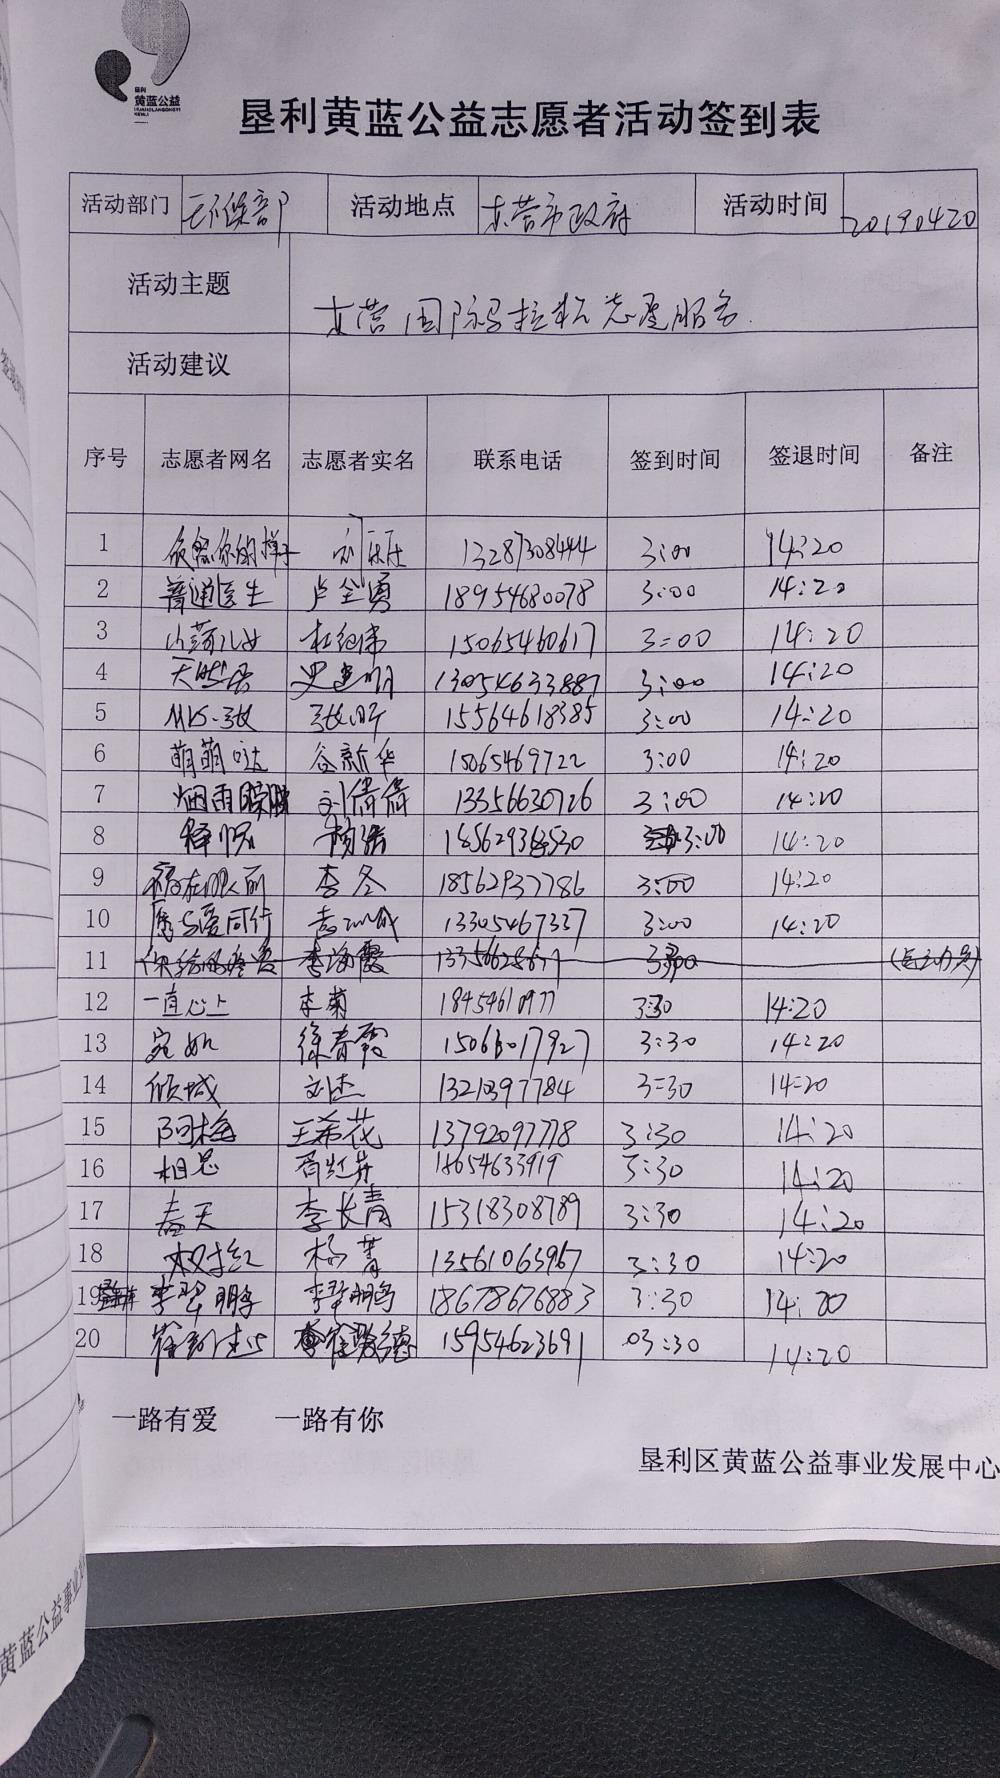 垦利
黄蓝公益
HUANGLANGONGYI
KENLI
垦利黄蓝公益志愿者活动签到表
活动部门 环保部 活动地点 东营市政府 活动时间 20190420
活动主题 东营国际马拉松志愿服务
活动建议
序号 志愿者网名 志愿者实名 联系电话 签到时间 签退时间 备注
1 你的样子 刘乐乐 13287308444 3:00 14:20
2 普通医生 卢全勇 18954680078 3:00 14:20
3 杜纪伟 15065460617 3:00 14:20
4 天然 史建明 13054633887 3:00 14:20
5 15564618385 3:00 14:20
6 萌萌哒 谷新华 15065469722 3:00 14:20
7 烟雨朦胧 刘倩倩 13356630726 3:00 14:20
8 释怀 杨洁 3:00 14:20
9 福在眼前 李冬 18562937786 3:00 14:20
10 愿与爱同行 13305467337 3:00 14:20
11 李海霞
12 一直心上 李菊 18454610977 3:30 14:20
13 宛如 徐春霞 15063017927 3:30 14:20
14 倾城 刘杰 13210397784 3:30 14:20
15 阿梅 王希花 13792097778 3:30 14:20
16 相思 18654633919 3:30 14:20
17 春天 李长青 15318308789 3:30 14:20
18 杨菁 13561063967 3:30 14:20
19 李翠鹏 李翠鹏 18678676883 3:30 14:20
20 15954623691 03:30 14:20
一路有爱 一路有你
垦利区黄蓝公益事业发展中心
黄蓝公益事业发